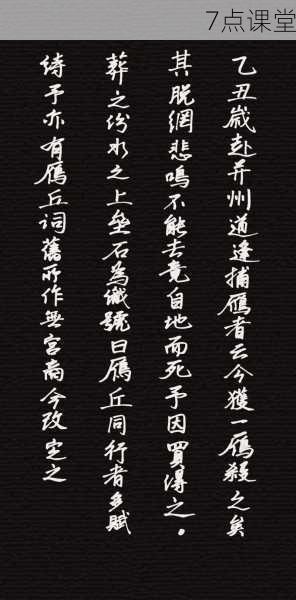 7点课堂
乙丑歲赴并州道逢捕鴈者云今獲一鴈殺之矣
其脫網悲鳴不能去竟自地而死予因買得之。
葬之汾水之上垒石為識號曰鴈丘同行者多賦
詩予亦有鴈丘詞舊所作無宮商今改定之